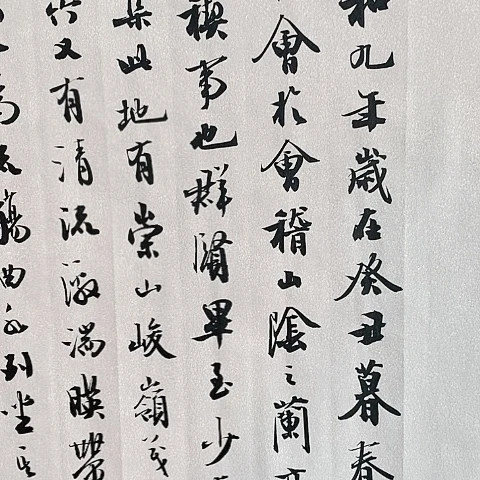 和九年歲在癸丑暮春
會於會稽山陰之蘭亭
禊事也群賢畢至少
集此地有崇山峻嶺茂
竹又有清流激湍暎帶
為流觴曲水列坐其